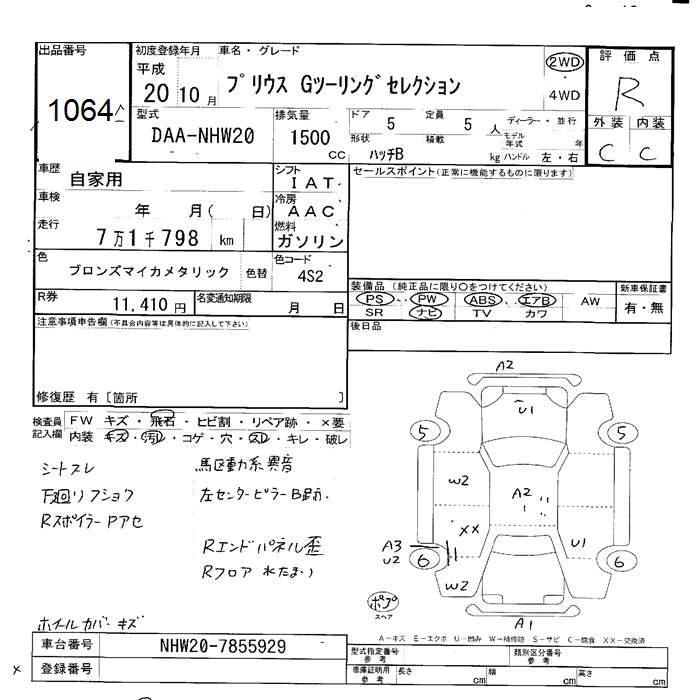 出品番号
1064
初度登録年月
平成
20 10 月
車名・グレード
プリウス Gツーリングセレクション
2WD
4WD
評価点
R
外装 内装
C C
型式
DAA-NHW20
排気量
1500
CC
ドア 5
定員 5 人
ディーラー・並行
モデル年式 年
形状 ハッチB
積載 kg
ハンドル 左・右
車歴
自家用
シフト
IAT
車検
年 月( 日)
冷房
AAC
走行
7万1千798 km
燃料
ガソリン
色
ブロンズマイカメタリック 色替
色コード
4S2
R券
11,410 円
名変通知期限
月 日
セールスポイント(正常に機能するものに限ります)
装備品 (純正品に限り○をつけてください)
PS PW ABS エアB AW
SR ナビ TV カワ
新車保証書
有・無
後日品
注意事項申告欄(不具合内容等は具体的に記入して下さい)
修復歴 有 [箇所 ]
検査員記入欄
FW キズ・飛石・ヒビ割・リペア跡・×要
内装 キズ・汚レ・コゲ・穴・スレ・キレ・破レ
シートスレ
下廻りフショク
RスポイラーPアセ
馬区動系異音
左センターピラーB跡小
Rエンドパネル歪
Rフロア 水たまり
ホイルカバーキズ
A2
U1
5
5
W2
A2
XX
A3
U2
6
U1
6
W2
ポプ
スペア
A1
A-キズ E-エクボ U-凹み W-補修跡 S-サビ C-腐食 XX-交換済
車台番号
NHW20-7855929
登録番号
型式指定番号
参考
類別区分番号
参考
車庫証明用
参考
長さ cm
幅 cm
高さ cm